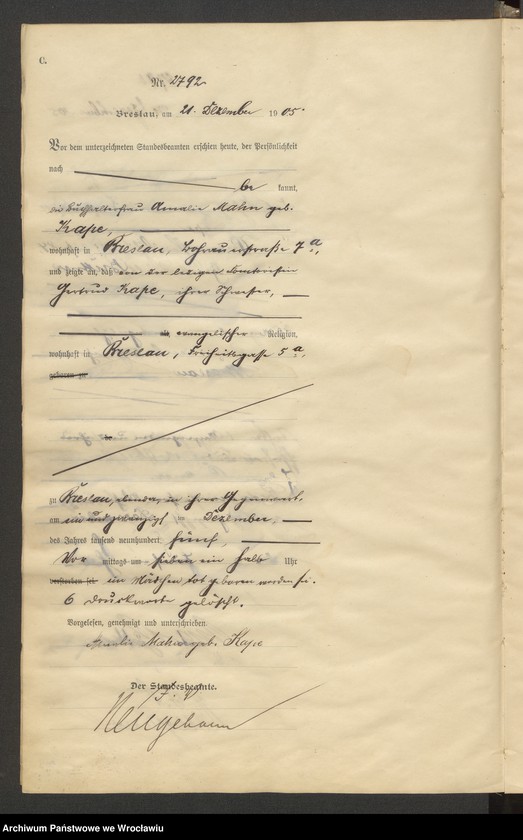 C.
Nr. 2792
Breslau, am 21. Dezember 1905.
Vor dem unterzeichneten Standesbeamten erschien heute, der Persönlichkeit
nach
be kannt,
die Buchhalterfrau Amalie Mahn geb.
Kape,
wohnhaft in Breslau, Bohrauerstraße 7a,
und zeigte an, daß von der ledigen Kontoristin
Gertrud Kape, ihrer Schwester,
evangelischer Religion,
wohnhaft in Breslau, Freiheitsgasse 5a,
geboren zu
zu Breslau, ebenda, in ihrer Gegenwart,
am ein und zwanzigst en Dezember,
des Jahres tausend neunhundert fünf
Vor mittags um sieben ein halb Uhr
verstorben sei ein Mädchen tot geboren worden sei.
6 Druckworte gelöscht.
Vorgelesen, genehmigt und unterschrieben.
Amalie Mahn geb. Kape
Der Standesbeamte.
Archiwum Państwowe we Wrocławiu